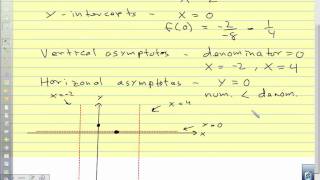 Y-intercepts - X = 0
f(0) = -2/-8 = 1/4
Vertical asymptotes - denominator = 0
X = -2, X = 4
Horizonal asymptotes - Y = 0
num. < denom.
x=-2
Y
x=4
x=0
X